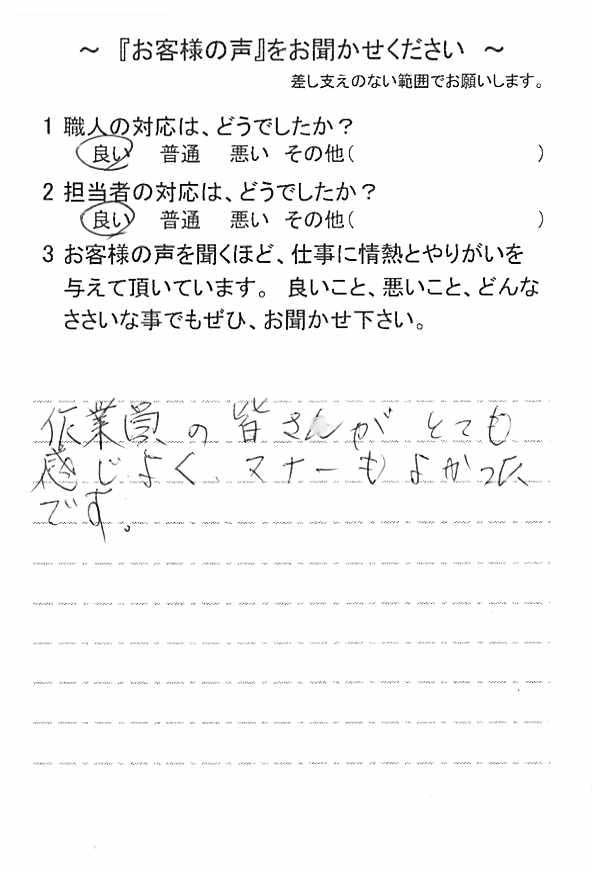 ～ 『お客様の声』をお聞かせください ～
差し支えのない範囲でお願いします。
1 職人の対応は、どうでしたか？
良い 普通 悪い その他( )
2 担当者の対応は、どうでしたか？
良い 普通 悪い その他( )
3 お客様の声を聞くほど、仕事に情熱とやりがいを
与えて頂いています。 良いこと、悪いこと、どんな
ささいな事でもぜひ、お聞かせ下さい。
作業員の皆さんがとても
感じよく、マナーもよかった
です。